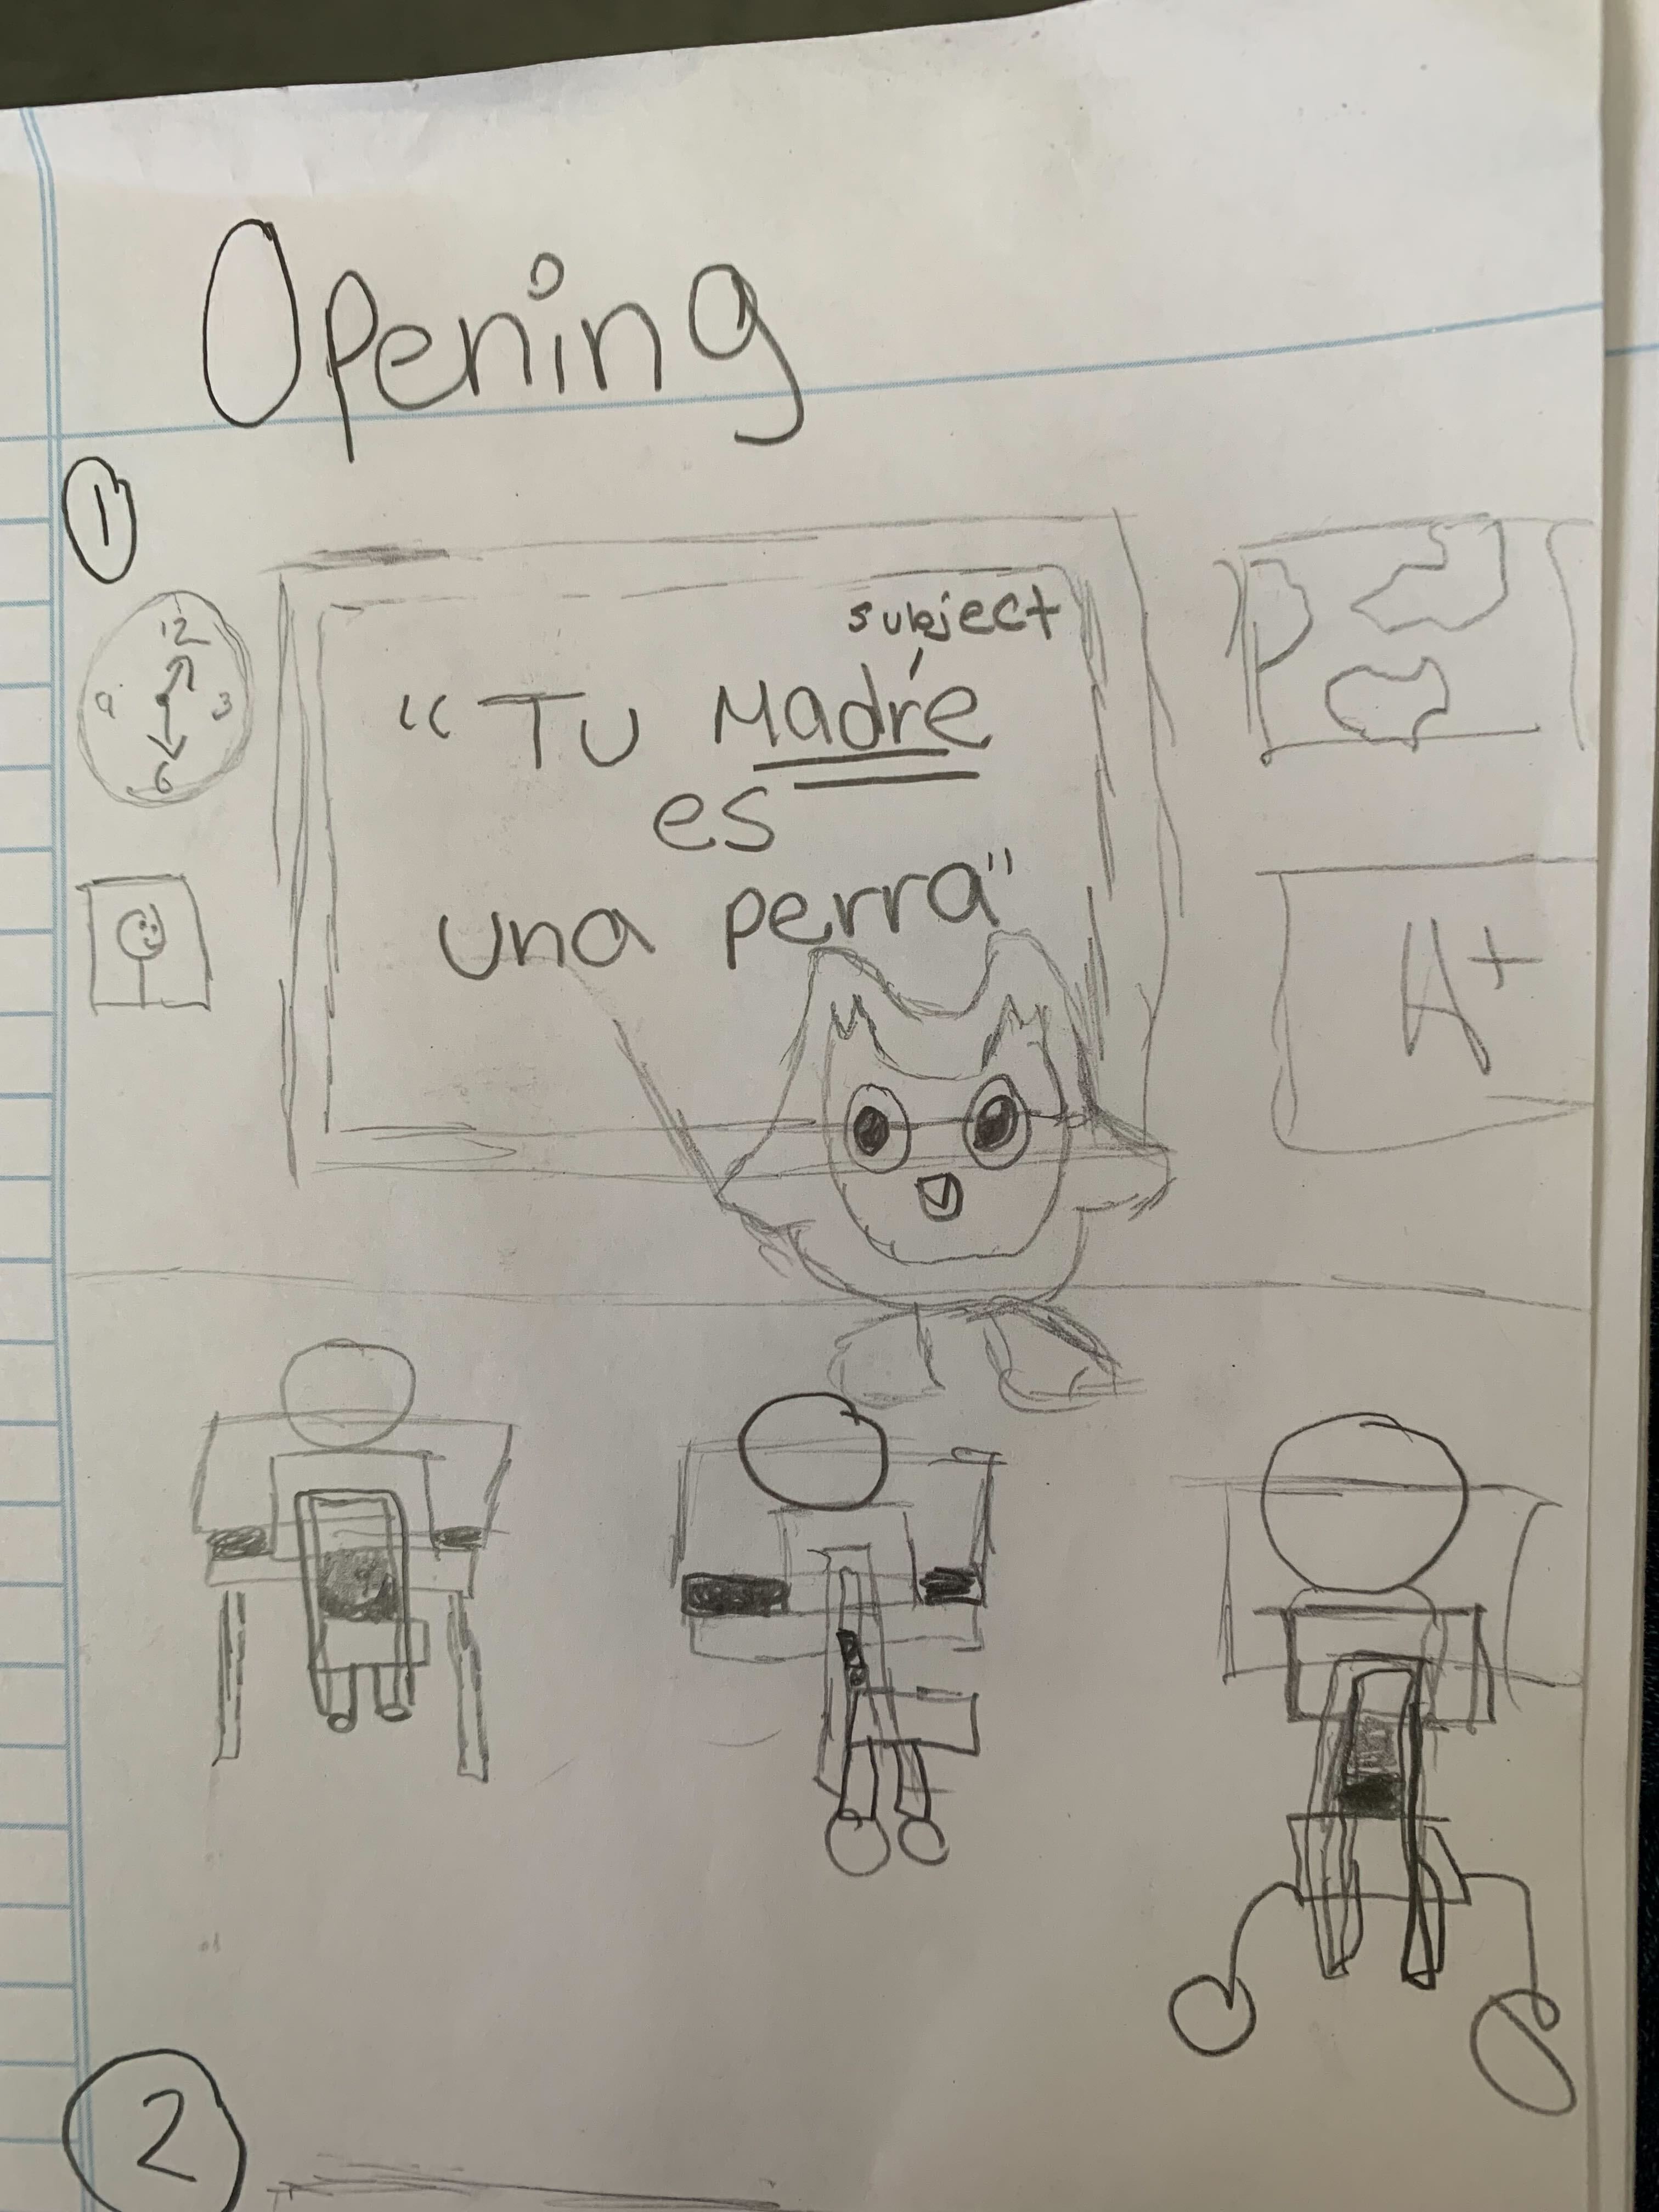 Opening
1
12
9 3
6
subject
"Tu Madre
es
una perra"
A+
2